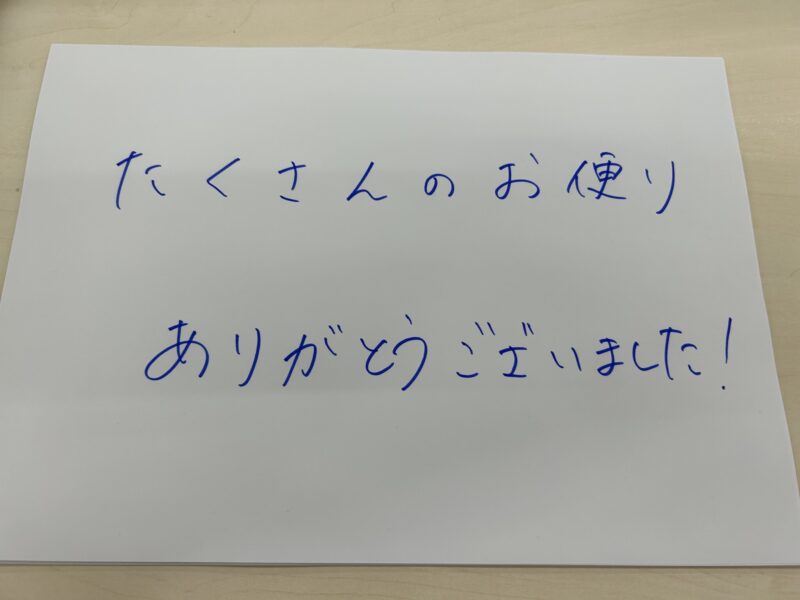 たくさんのお便り
ありがとうございました!